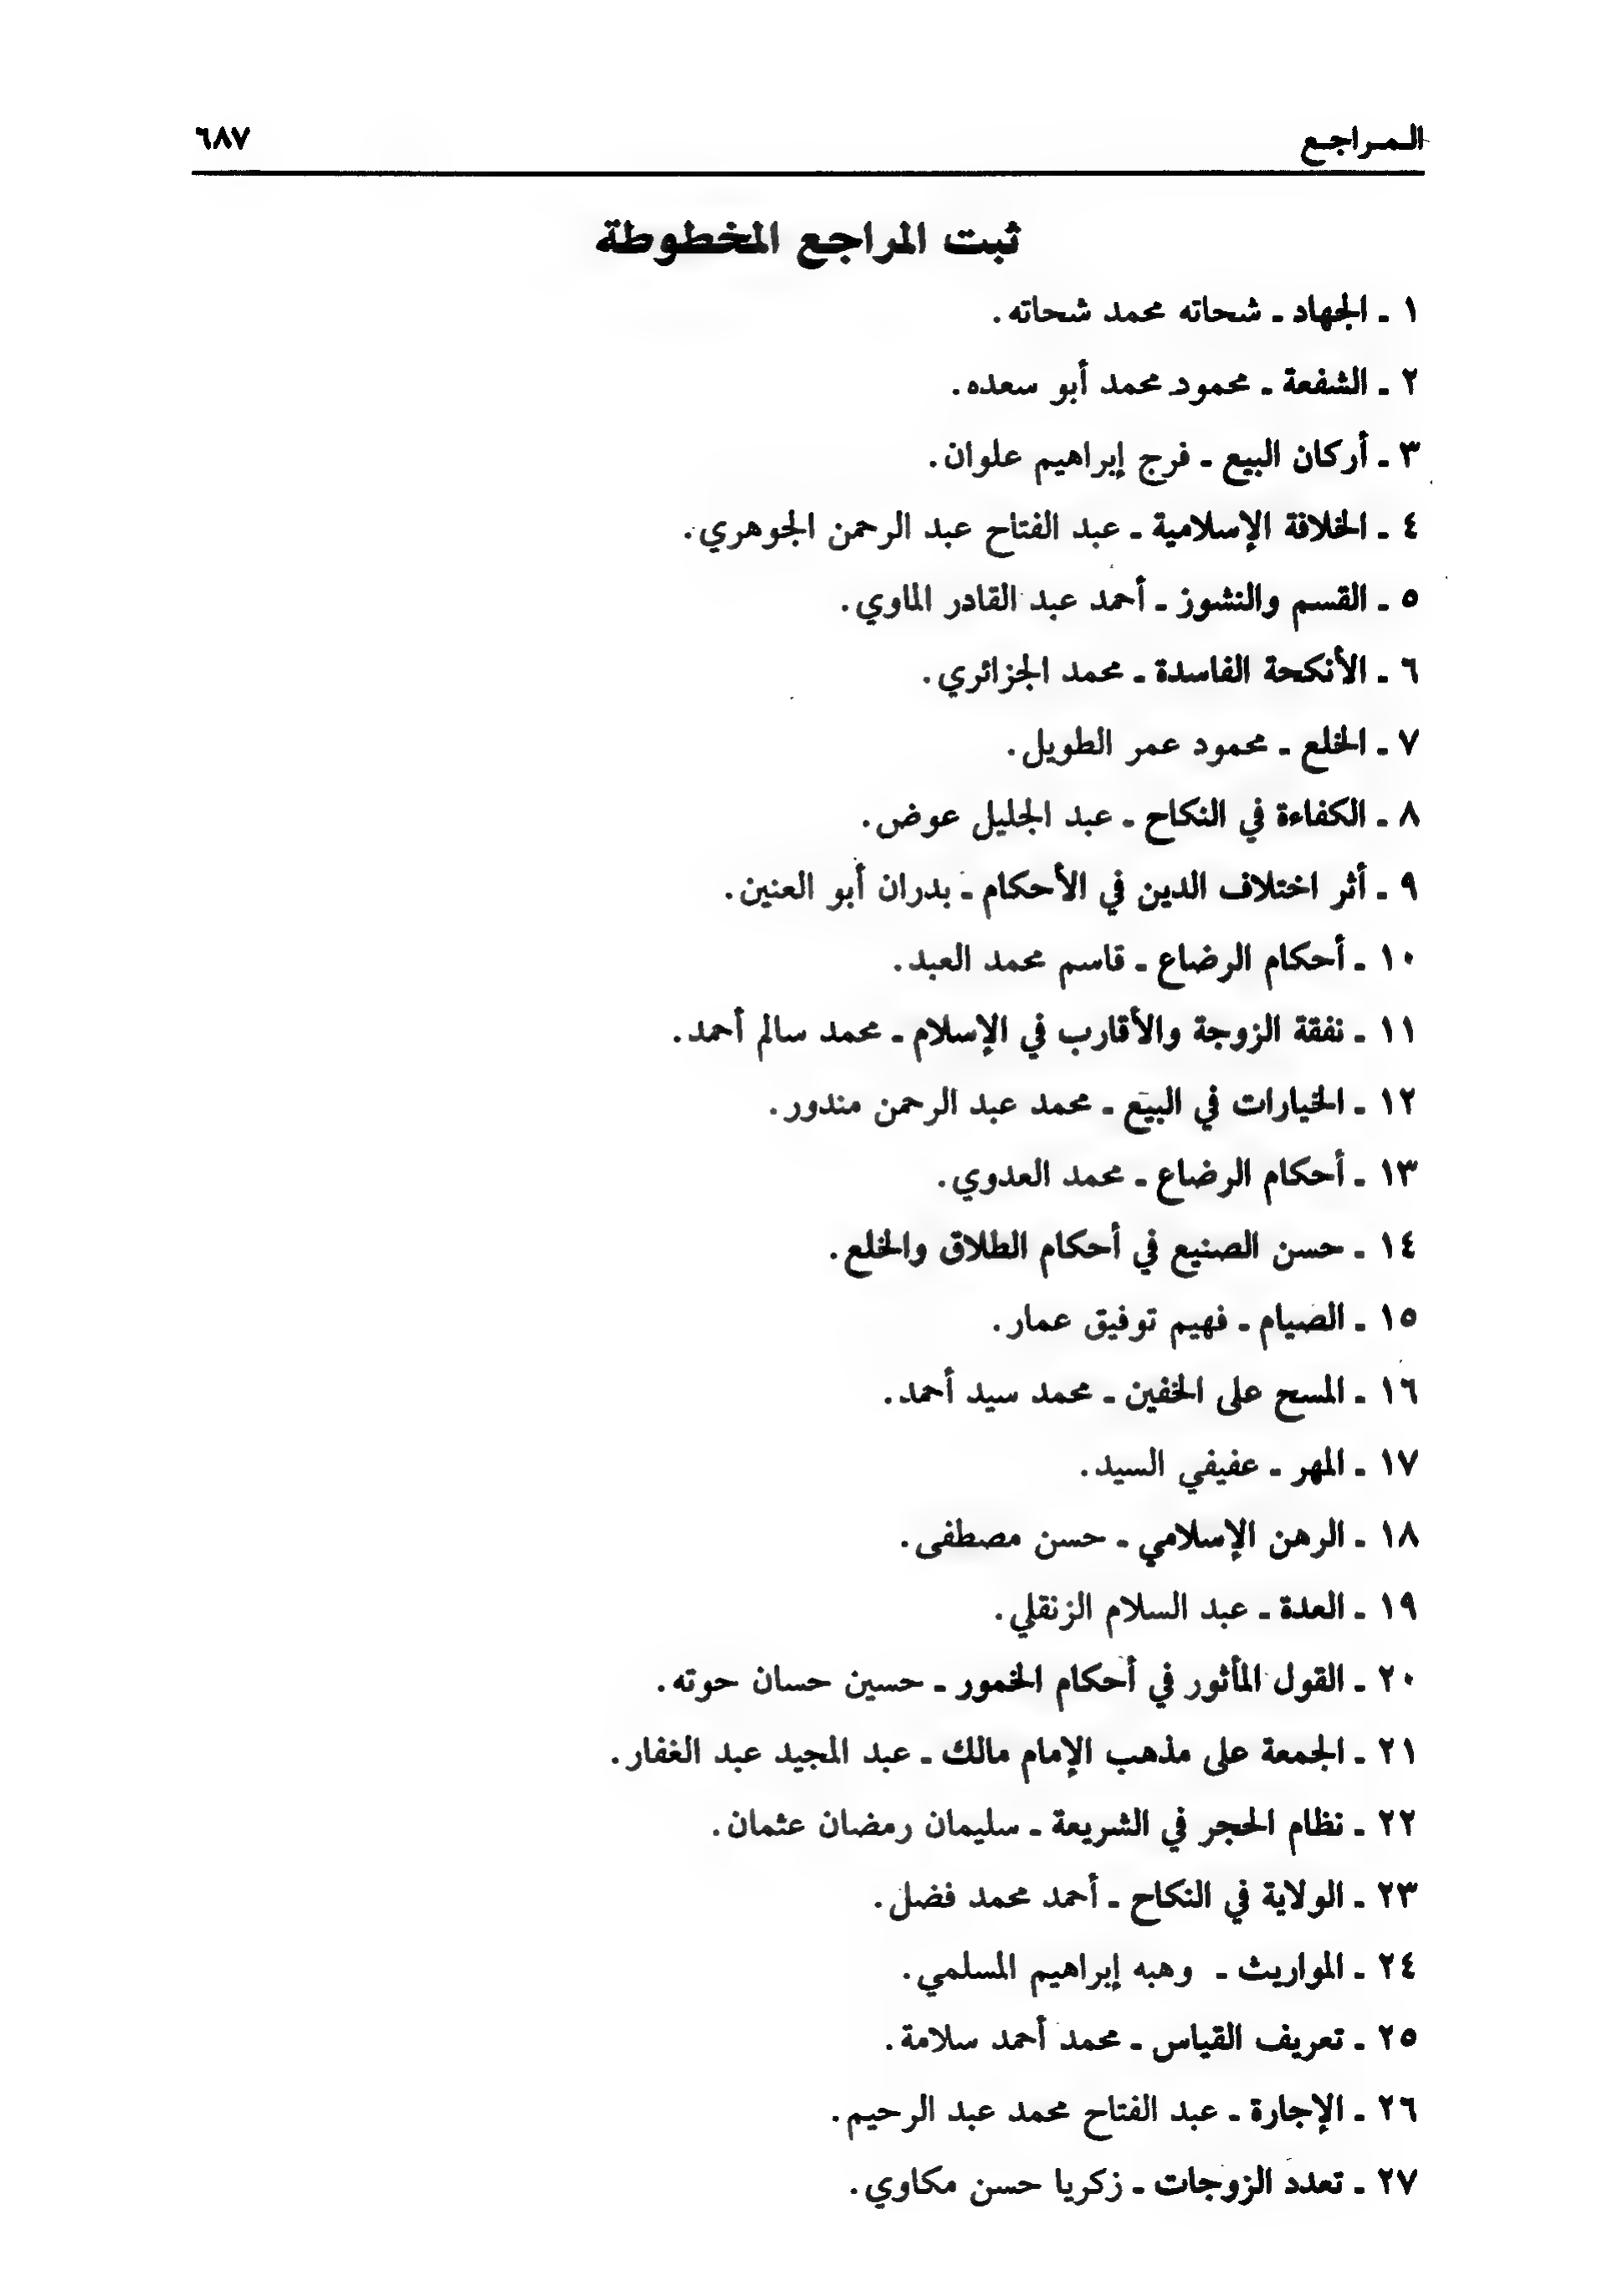 المراجع ٦٨٧
ثبت المراجع المخطوطة
١ ـ الجهاد ـ شحاته محمد شحاته.
٢ ـ الشفعة ـ محمود محمد أبو سعده.
٣ ـ أركان البيع ـ فرج إبراهيم علوان.
٤ ـ الخلافة الإسلامية ـ عبد الفتاح عبد الرحمن الجوهري.
٥ ـ القسم والنشوز ـ أحمد عبد القادر الماوي.
٦ ـ الأنكحة الفاسدة ـ محمد الجزائري.
٧ ـ الخلع ـ محمود عمر الطويل.
٨ ـ الكفاءة في النكاح ـ عبد الجليل عوض.
٩ ـ أثر اختلاف الدين في الأحكام ـ بدران أبو العنين.
١٠ ـ أحكام الرضاع ـ قاسم محمد العبد.
١١ ـ نفقة الزوجة والأقارب في الإسلام ـ محمد سالم أحمد.
١٢ ـ الخيارات في البيع ـ محمد عبد الرحمن مندور.
١٣ ـ أحكام الرضاع ـ محمد العدوي.
١٤ ـ حسن الصنيع في أحكام الطلاق والخلع.
١٥ ـ الصيام ـ فهيم توفيق عمار.
١٦ ـ المسح على الخفين ـ محمد سيد أحمد.
١٧ ـ المهر ـ عفيفي السيد.
١٨ ـ الرهن الإسلامي ـ حسن مصطفى.
١٩ ـ العدة ـ عبد السلام الزنقلي.
٢٠ ـ القول المأثور في أحكام الخمور ـ حسين حسان حوته.
٢١ ـ الجمعة على مذهب الإمام مالك ـ عبد المجيد عبد الغفار.
٢٢ ـ نظام الحجر في الشريعة ـ سليمان رمضان عثمان.
٢٣ ـ الولاية في النكاح ـ أحمد محمد فضل.
٢٤ ـ المواريث ـ وهبه إبراهيم المسلمي.
٢٥ ـ تعريف القياس ـ محمد أحمد سلامة.
٢٦ ـ الإجارة ـ عبد الفتاح محمد عبد الرحيم.
٢٧ ـ تعدد الزوجات ـ زكريا حسن مكاوي.